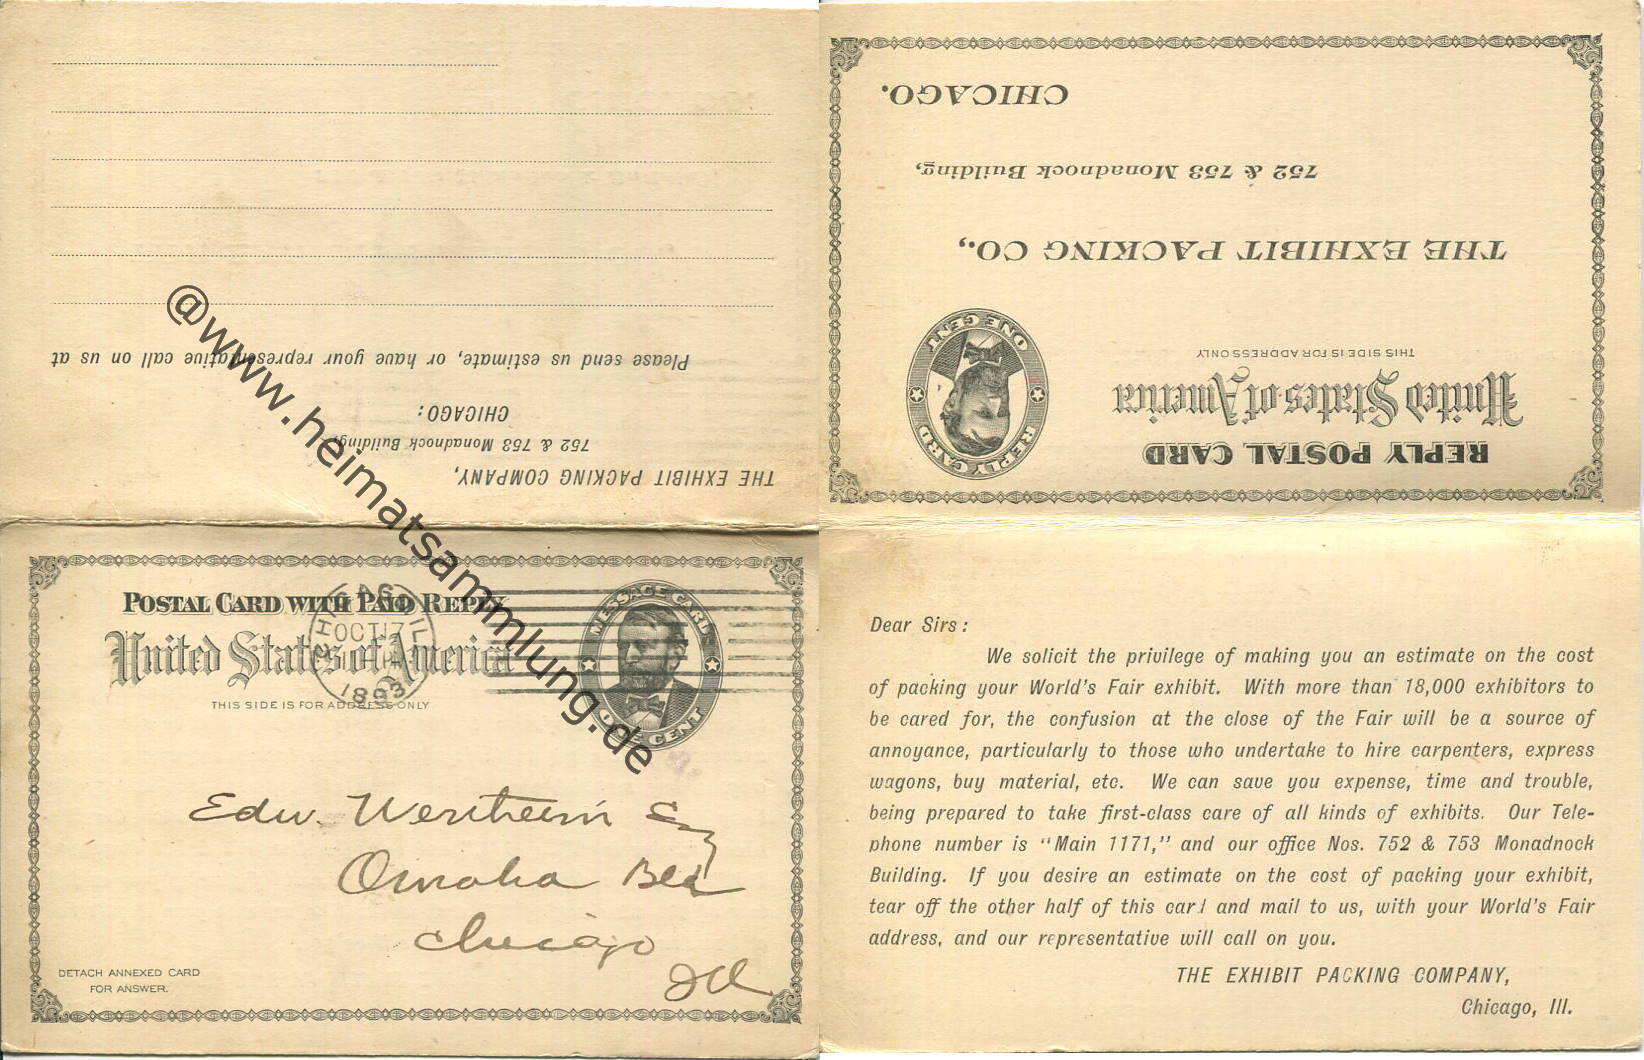 THE EXHIBIT PACKING COMPANY,
752 & 753 Monadnock Building,
CHICAGO:
Please send us estimate, or have your representative call on us at
REPLY POSTAL CARD
United States of America
THIS SIDE IS FOR ADDRESS ONLY
REPLY CARD
ONE CENT
THE EXHIBIT PACKING CO.,
752 & 753 Monadnock Building,
CHICAGO.
@www.heimatsammlung.de
POSTAL CARD WITH PAID REPLY
United States of America
THIS SIDE IS FOR ADDRESS ONLY
CHICAGO, ILL
OCT 17
1893
MESSAGE CARD
ONE CENT
Edw. Wertheim Esq
Omaha Bld
Chicago
Ill.
DETACH ANNEXED CARD
FOR ANSWER.
Dear Sirs:
We solicit the privilege of making you an estimate on the cost
of packing your World's Fair exhibit. With more than 18,000 exhibitors to
be cared for, the confusion at the close of the Fair will be a source of
annoyance, particularly to those who undertake to hire carpenters, express
wagons, buy material, etc. We can save you expense, time and trouble,
being prepared to take first-class care of all kinds of exhibits. Our Tele-
phone number is "Main 1171," and our office Nos. 752 & 753 Monadnock
Building. If you desire an estimate on the cost of packing your exhibit,
tear off the other half of this card and mail to us, with your World's Fair
address, and our representative will call on you.
THE EXHIBIT PACKING COMPANY,
Chicago, Ill.